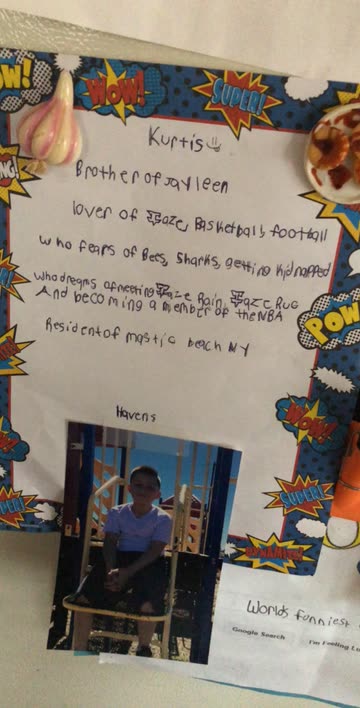 OW!
WOW!
SUPER!
Kurtis
Brother of Jayleen
lover of Faze, Basketball, football
who fears of Bees, Sharks, getting Kidnapped
who dreams of meeting Faze Rain, Faze Rug
And becoming a member of the NBA
Resident of mastic beach NY
POW
Havens
SUPER!
Worlds funniest
Google Search I'm Feeling Lu